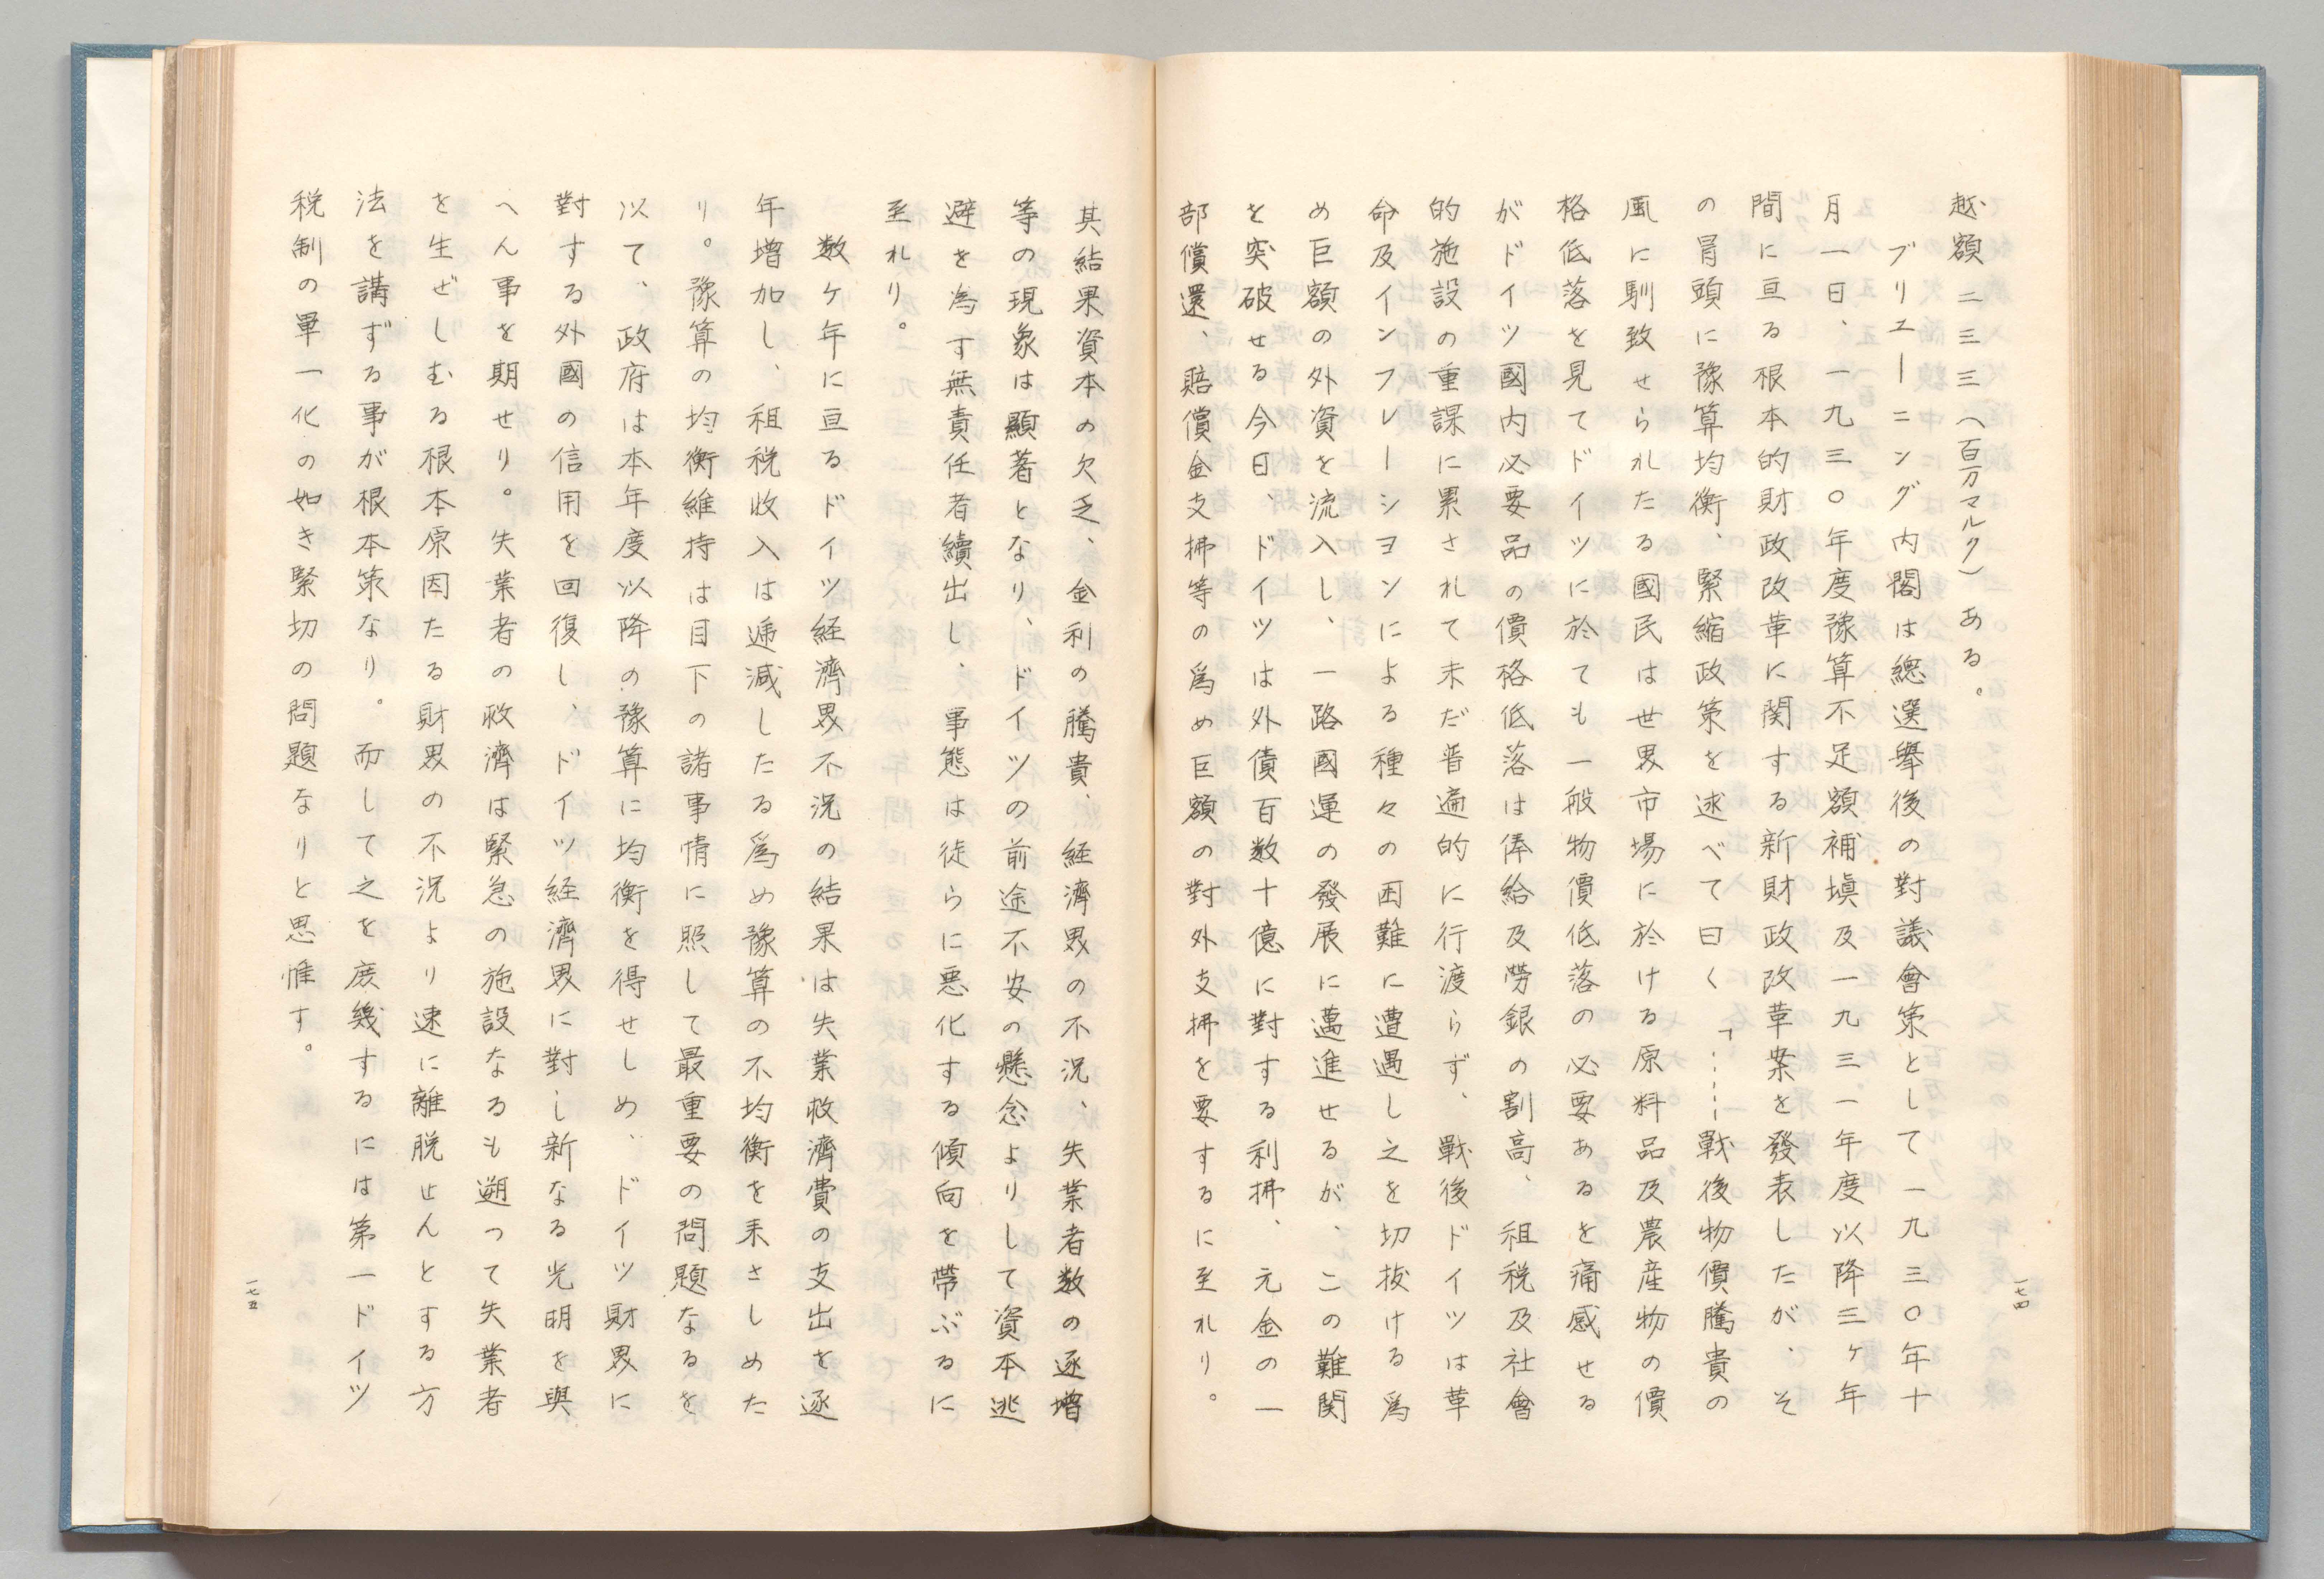 越額 二三三(百万マルク) ある。
ブリューニング内閣は總選擧後の對議會策として一九三〇年十
月一日、一九三〇年度豫算不足額補塡及一九三一年度以降三ヶ年
間に亘る根本的財政改革に関する新財政改革案を發表したが、そ
の冐頭に豫算均衡、緊縮政策を述べて曰く「……戰後物價騰貴の
風に馴致せられたる國民は世界市場に於ける原料品及農産物の價
格低落を見てドイツに於ても一般物價低落の必要あるを痛感せる
がドイツ國内必要品の價格低落は俸給及勞銀の割高、租税及社會
的施設の重課に累されて未だ普遍的に行渡らず、戰後ドイツは革
命及インフレーションによる種々の困難に遭遇し之を切抜ける爲
め巨額の外資を流入し、一路國運の發展に邁進せるが、この難関
を突破せる今日、ドイツは外債百数十億に對する利拂、元金の一
部償還、賠償金支拂等の爲め巨額の對外支拂を要するに至れり。
一七四
其結果資本の欠乏、金利の騰貴、経濟界の不況、失業者数の逐増
等の現象は顯著となり、ドイツの前途不安の懸念よりして資本逃
避を為す無責任者續出し、事態は徒らに悪化する傾向を帶ぶるに
至れり。
数ヶ年に亘るドイツ経濟界不況の結果は失業救濟費の支出を逐
年増加し、租税收入は逓減したる爲め豫算の不均衡を来さしめた
り。豫算の均衡維持は目下の諸事情に照して最重要の問題なるを
以て、政府は本年度以降の豫算に均衡を得せしめ、ドイツ財界に
對する外國の信用を回復し、ドイツ経濟界に對し新なる光明を與
へん事を期せり。失業者の救濟は緊急の施設なるも遡って失業者
を生ぜしむる根本原因たる財界の不況より速に離脱せんとする方
法を講ずる事が根本策なり。而して之を庶幾するには第一ドイツ
税制の單一化の如き緊切の問題なりと思惟す。
一七五